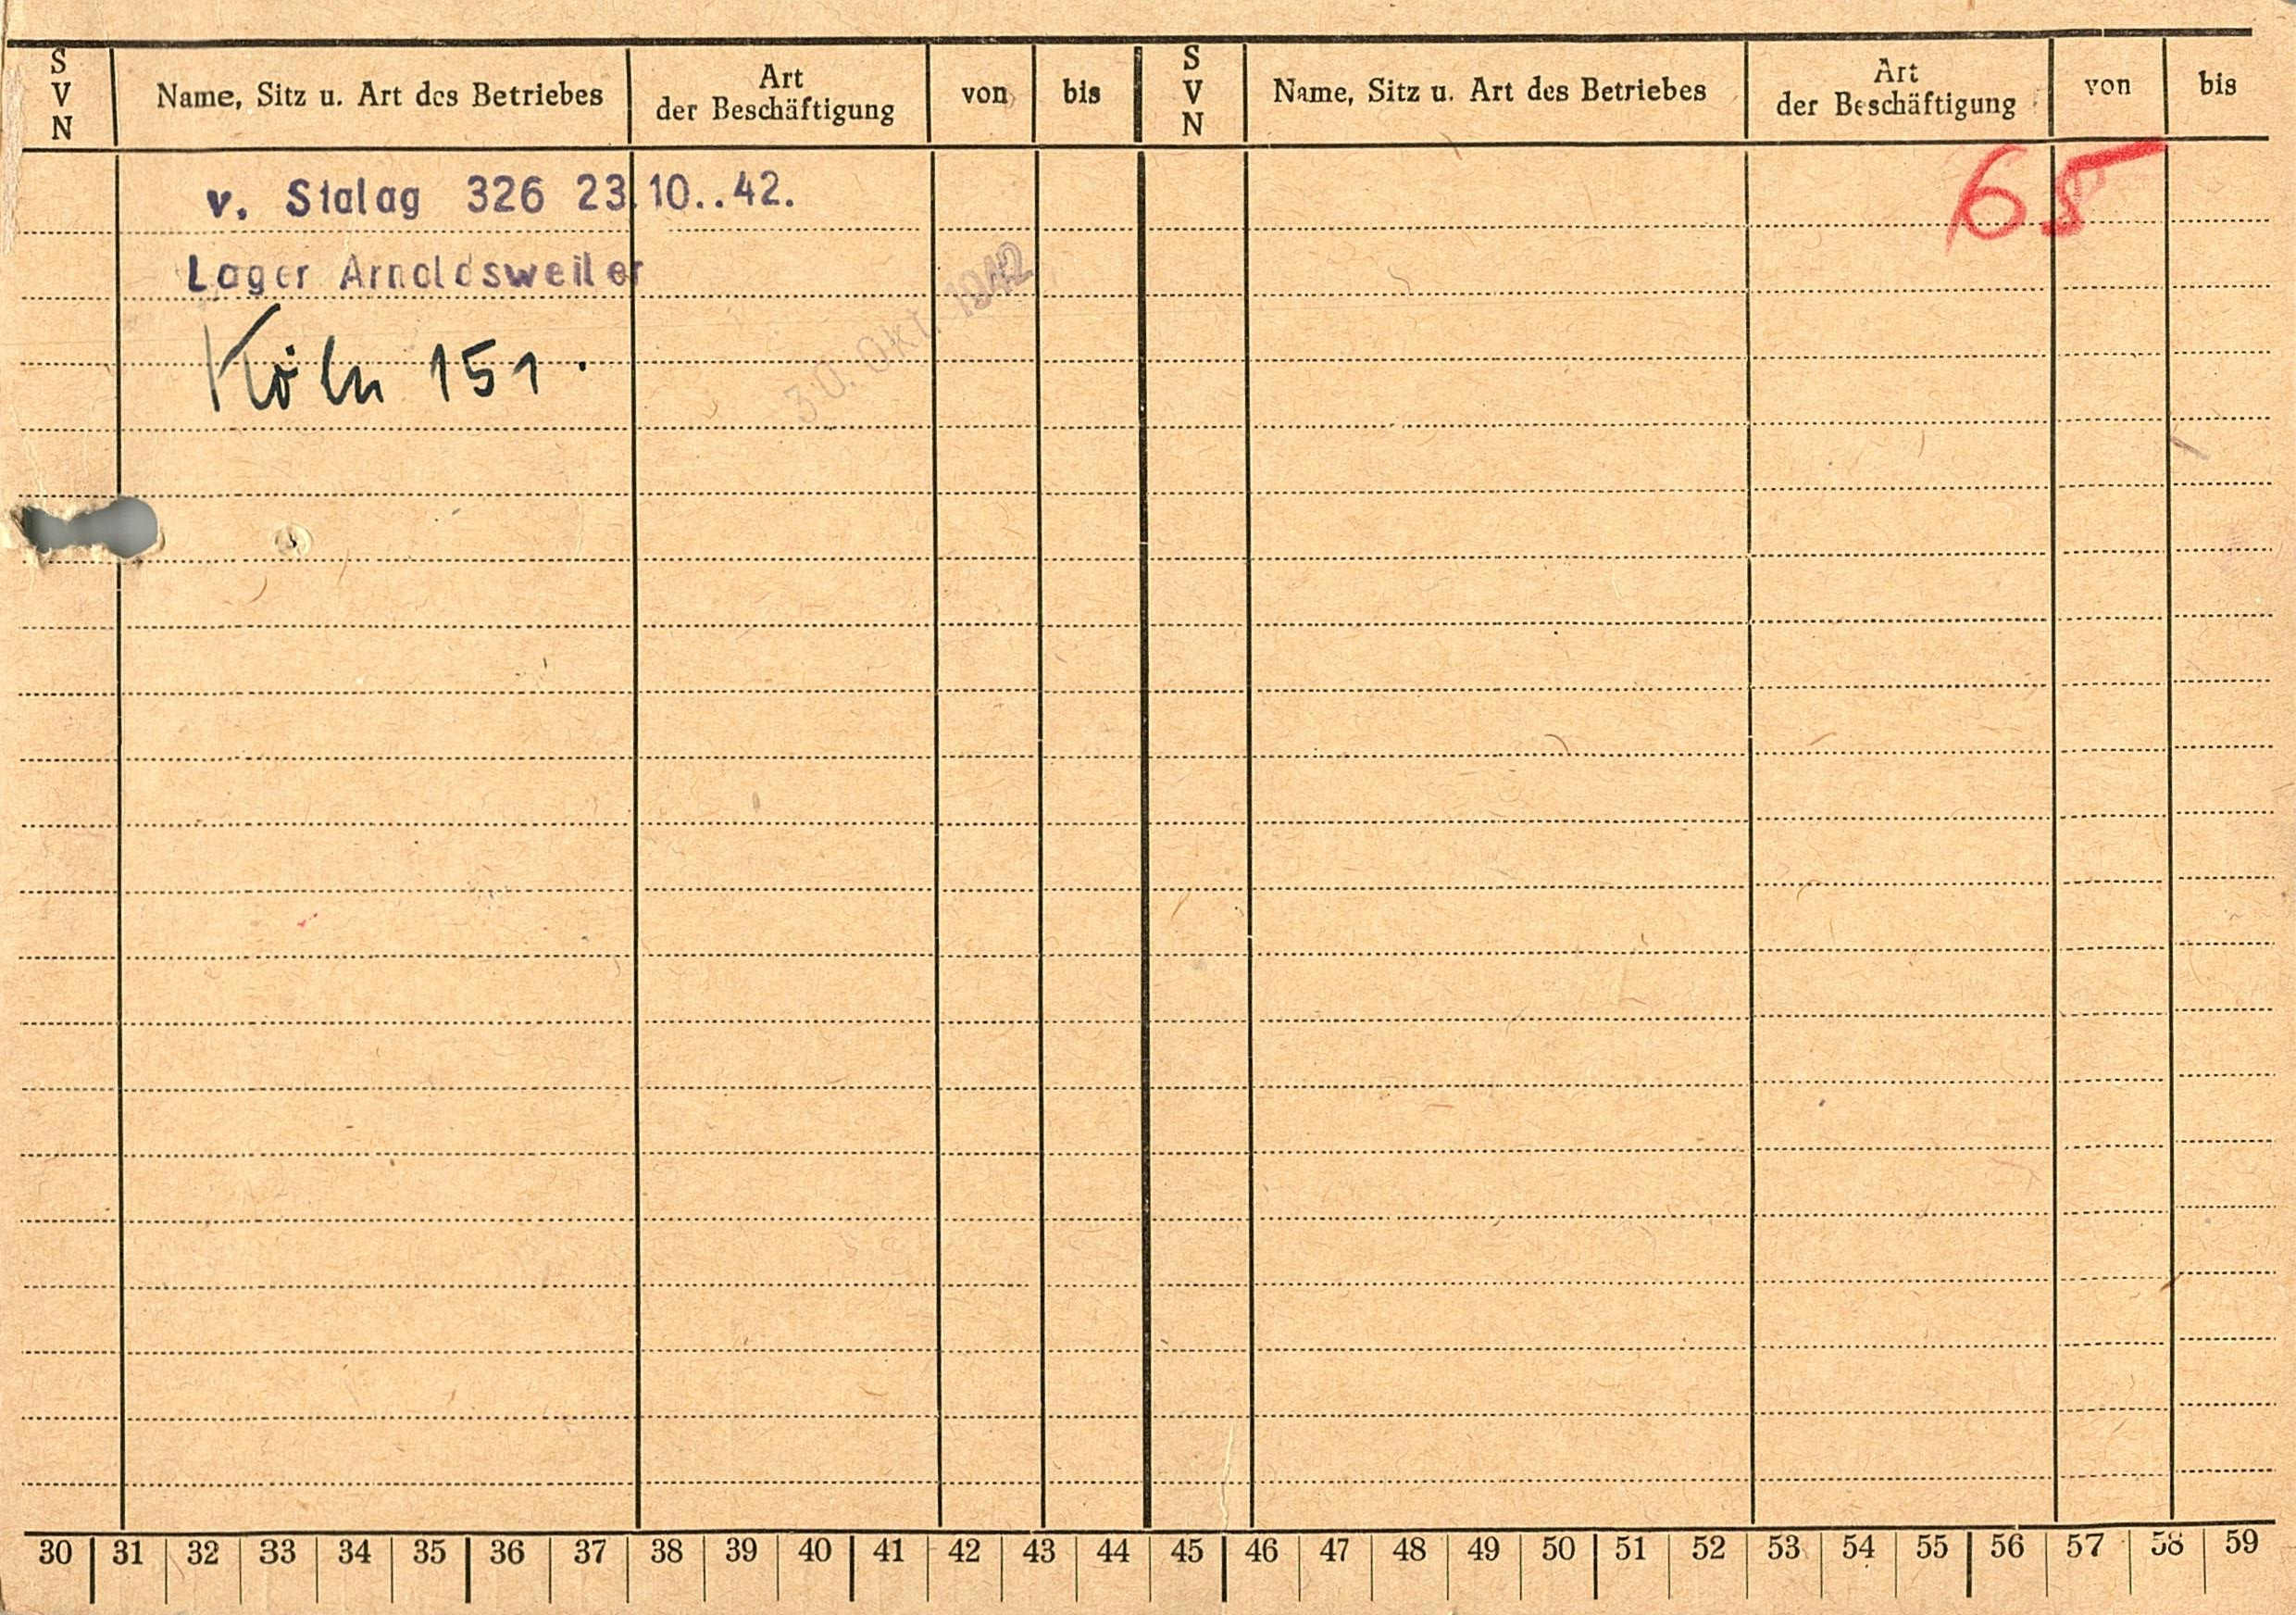 S V N Name, Sitz u. Art des Betriebes Art der Beschäftigung von bis S V N Name, Sitz u. Art des Betriebes Art der Beschäftigung von bis
65
v. Stalag 326 23.10..42.
Lager Arnoldsweiler
30. Okt. 1942
Köln 151.
30 31 32 33 34 35 36 37 38 39 40 41 42 43 44 45 46 47 48 49 50 51 52 53 54 55 56 57 58 59